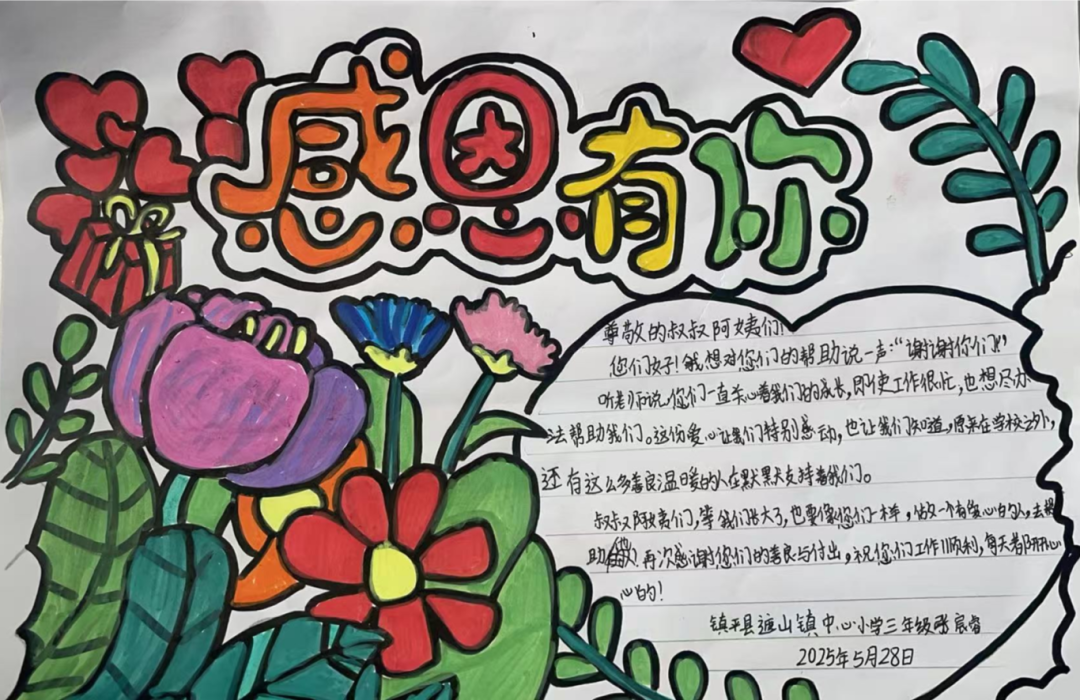 感恩有你
尊敬的叔叔阿姨们!
您们好!我想对您们的帮助说一声:“谢谢你们!”
听老师说,您们一直关心着我们的成长,即使工作很忙,也想尽办
法帮助我们。这份爱心让我们特别感动,也让我们知道,原来在学校之外,
还有这么多善良温暖的人在默默支持着我们。
叔叔阿姨们,等我们长大了,也要像您们一样,做一个有爱心的人,去帮
助他人,再次感谢您们的善良与付出,祝您们工作顺利,每天都开开心
心的!
镇平县遮山镇中心小学三年级张宸
2025年5月28日